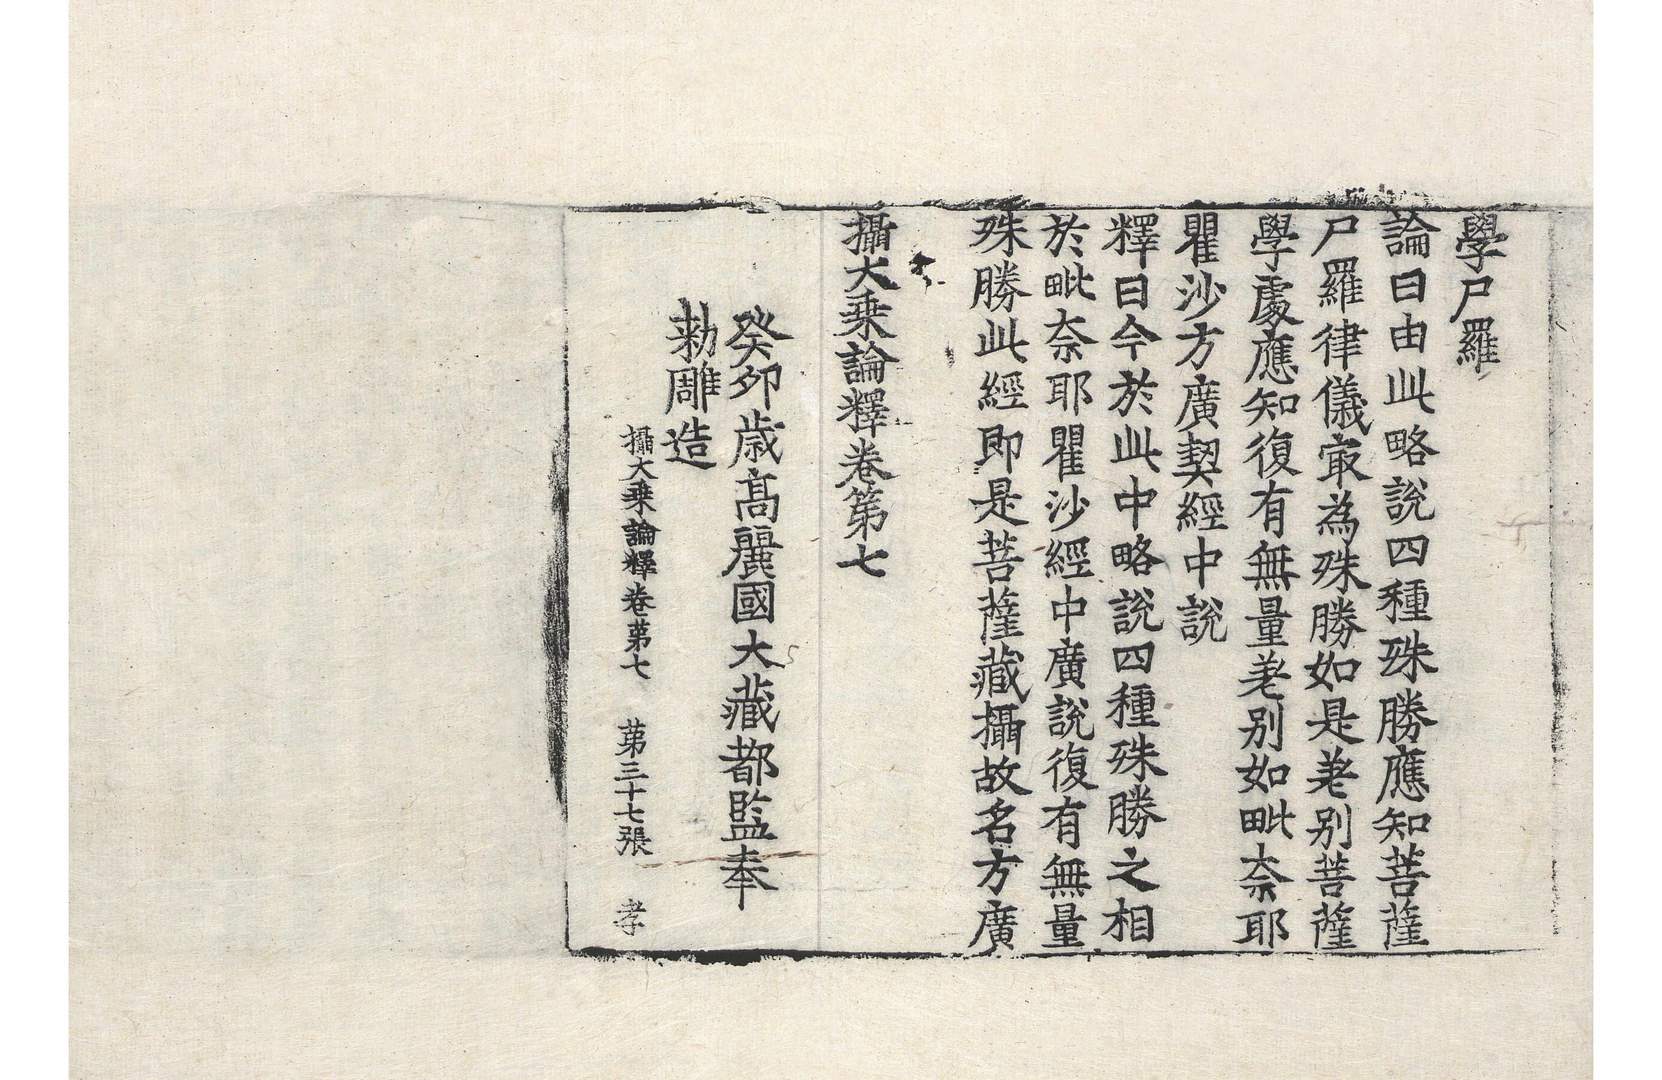 學尸羅
論曰由此略說四種殊勝應知菩薩
尸羅律儀㝡為殊勝如是差别菩薩
學處應知復有無量差别如毗奈耶
瞿沙方廣契經中說
釋曰今於此中略說四種殊勝之相
於毗奈耶瞿沙經中廣說復有無量
殊勝此經即是菩薩藏攝故名方廣
攝大乗論釋卷第七
癸卯歳髙麗國大藏都監奉
勑雕造
攝大乗論釋卷苐七 苐三十七張 孝